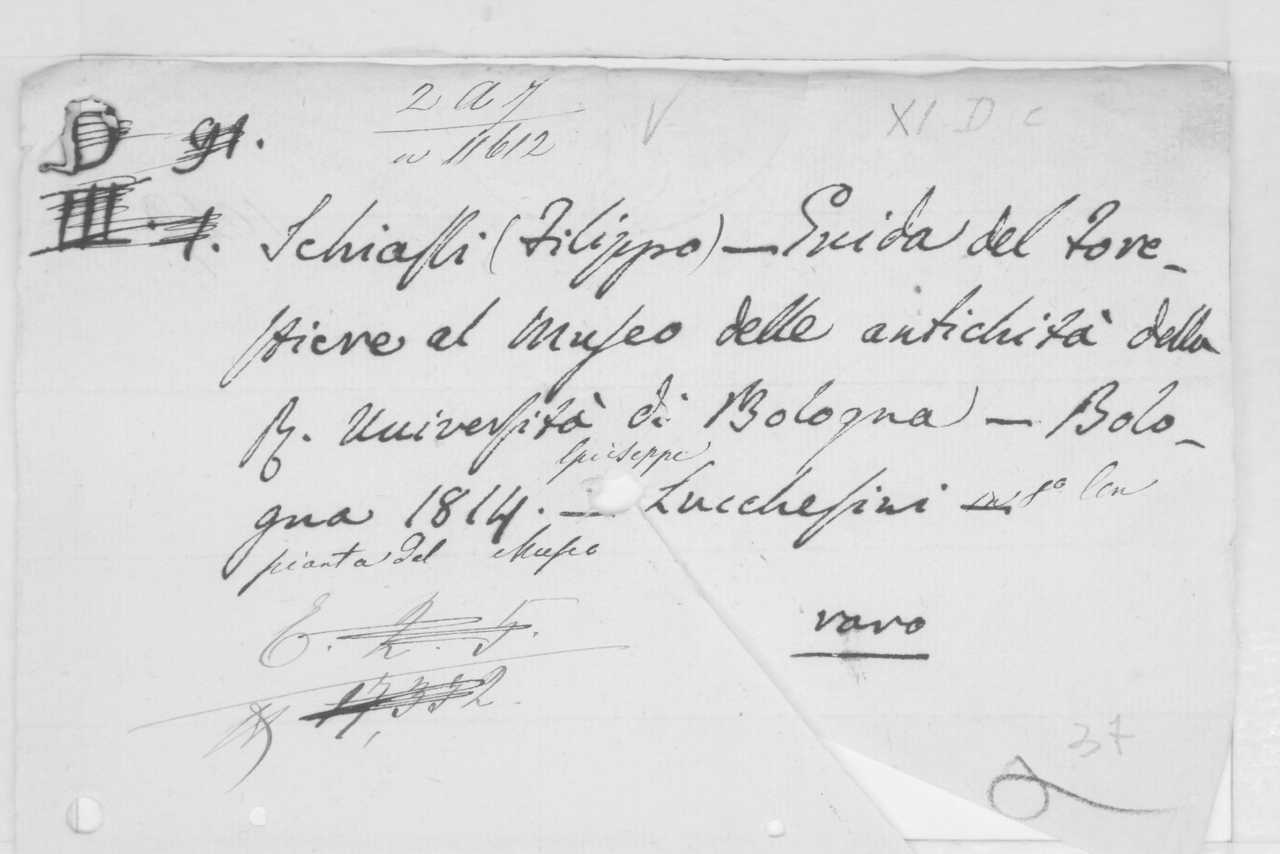 D 91.
2 a 7
11612
V
XI D c
III. 1.
Schiassi (Filippo) — Guida del fore-
stiere al Museo delle antichità della
R. Università di Bologna — Bolo-
Giuseppe
gna 1814. — Lucchesini in 8º Con
pianta del Museo
E. R. F.
raro
17,332
37